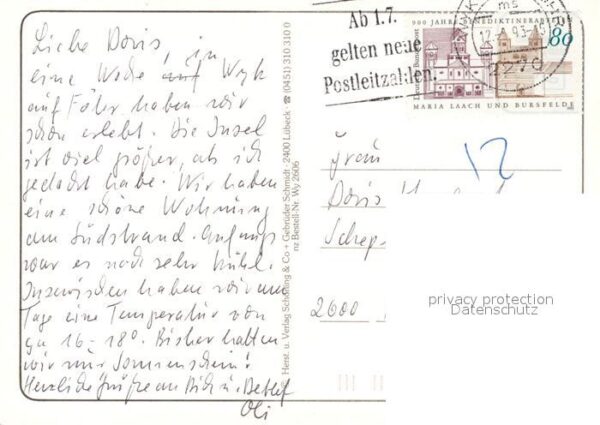 Liebe Doris, in
eine Woche auf Wyk
auf Föhr haben wir
schon erlebt. Die Insel
ist viel größer, als ich
gedacht habe. Wir haben
eine schöne Wohnung
am Südstrand. Anfangs
war es noch sehr kühl.
Inzwischen haben wir am
Tage eine Temperatur von
ca 16-18°. Bisher hatten
wir nur Sonnenschein!
Herzliche Grüße an Dich u. Detlef
Oli
Herst. u. Verlag Schöning & Co + Gebrüder Schmidt · 2400 Lübeck · ☎ (0451) 310 310 0
nz Bestell-Nr. Wy 2606
Ab 1.7.
gelten neue
Postleitzahlen.
2270
900 JAHRE BENEDIKTINERABTEI
80
Deutsche Bundespost
MARIA LAACH UND BURSFELDE
12
Frau
Doris
Schep
2000
privacy protection
Datenschutz